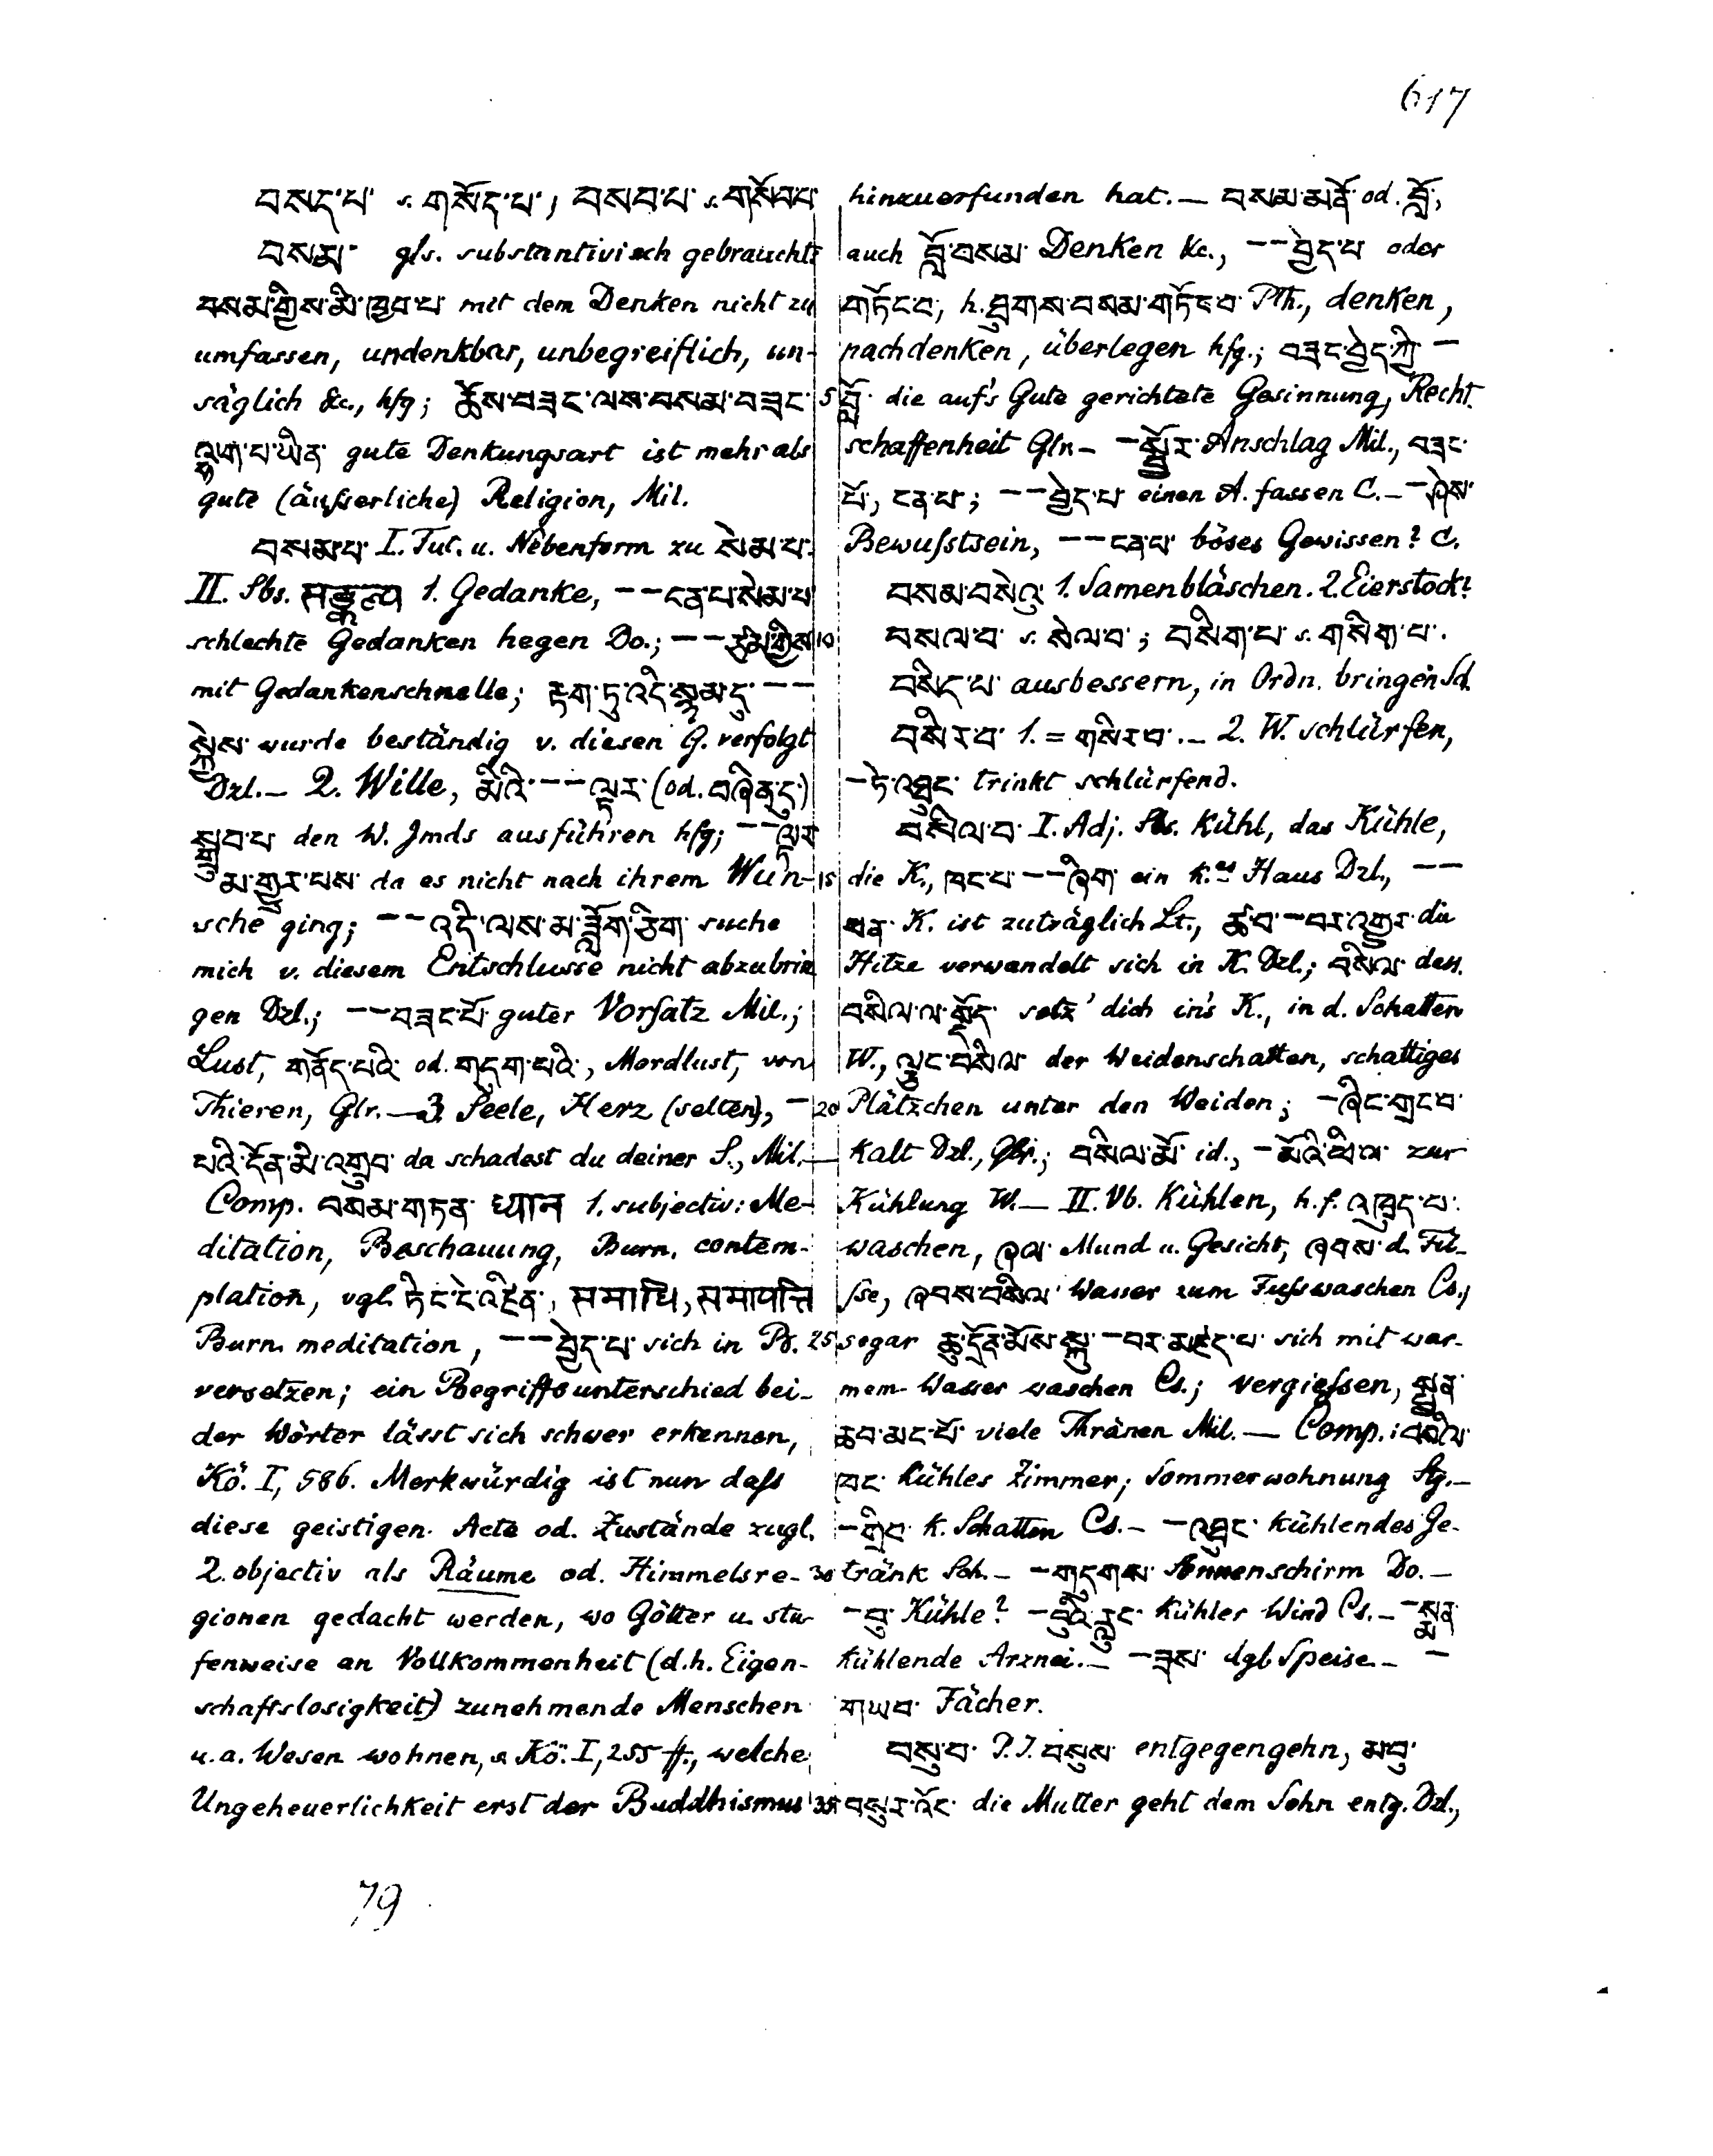 617
བསད་པ་ s. གསོད་པ་, བསབ་པ་ s. གསོབ་པ་
བསམ་ gls. substantivisch gebraucht:
བསམ་གྱིས་མི་ཁྱབ་པ་ mit dem Denken nicht zu
umfassen, undenkbar, unbegreiflich, un-
säglich &c., hfg; ཆོས་བཟང་ལས་བསམ་བཟང་
ལྷག་པ་ཡིན་ gute Denkungsart ist mehr als
gute (äußerliche) Religion, Mil.
བསམ་པ་ I. Fut. u. Nebenform zu སེམ་པ་.
II. Sbs. 1. Gedanke, –– ངན་པ་སེམ་པ་
schlechte Gedanken hegen Do.; –– ཙམ་གྱིས་
mit Gedankenschnelle; རྟག་ཏུ་འདི་སྙམ་དུ་ ––
སྐྱེས་ wurde beständig v. diesen G. verfolgt
Dzl. – 2. Wille, མིའི་ –– ལྟར་ (od. བཞིན་དུ་)
སྒྲུབ་པ་ den W. Jmds ausführen hfg; –– ལྟར་
མ་གྱུར་པས་ da es nicht nach ihrem Wun-
sche ging; –– འདི་ལས་མ་ཟློག་ཅིག་ suche
mich v. diesem Entschlusse nicht abzubrin
gen Dzl.; –– བཟང་པོ་ guter Vorsatz Mil.;
Lust, གནོད་པའི་ od. གདུག་པའི་, Mordlust, von
Thieren, Glr. – 3. Seele, Herz (selten), –
པའི་དོན་མི་འགྲུབ་ da schadest du deiner S., Mil. –
Comp. བསམ་གཏན་ ध्यान 1. subjectiv: Me-
ditation, Beschauung, Burn. contem-
plation, vgl. ཏིང་ངེ་འཛིན་, समाधि, समापत्ति
Burn. meditation, –– བྱེད་པ་ sich in B.
versetzen; ein Begriffsunterschied bei-
der Wörter lässt sich schwer erkennen,
Kö. I, 586. Merkwürdig ist nun daß
diese geistigen Acte od. Zustände zugl.
2. objectiv als Räume od. Himmelsre-
gionen gedacht werden, wo Götter u. stu-
fenweise an Vollkommenheit (d.h. Eigen-
schaftslosigkeit) zunehmende Menschen
u. a. Wesen wohnen, s. Kö. I, 255 ff., welche
Ungeheuerlichkeit erst der Buddhismus
hinzuerfunden hat. – བསམ་མནོ་ od. བློ་,
auch བློ་བསམ་ Denken &c., –– བྱེད་པ་ oder
གཏོང་བ་, h. ཐུགས་བསམ་གཏོང་བ་ Pth., denken,
nachdenken, überlegen hfg.; བཟང་བྱེད་ཀྱི་ –
5 བློ་ die auf's Gute gerichtete Gesinnung, Recht.
schaffenheit Gln – – སྦྱོར་ Anschlag Mil., བཟང་
པོ་, ངན་པ་; –– བྱེད་པ་ einen A. fassen C. – – ཤེས་
Bewußtsein, –– ངན་པ་ böses Gewissen? C.
བསམ་བསེའུ་ 1. Samenbläschen. 2. Eierstock?
10 བསལ་བ་ s. སེལ་བ་; བསིག་པ་ s. གསིག་པ་.
བསིད་པ་ ausbessern, in Ordn. bringen Sd.
བསིར་བ་ 1. = གསིར་བ་. – 2. W. schlürfen,
– ཏེ་འཐུང་ trinkt schlürfend.
བསིལ་བ་ I. Adj. Sbs. kühl, das Kühle,
15 die K., ཁང་པ་ –– ཞིག་ ein k.es Haus Dzl., ––
ཕན་ K. ist zuträglich Lt., ཚ་བ་ – བར་འགྱུར་ die
Hitze verwandelt sich in K. Dzl.; བསིལ་ dass.
བསིལ་ལ་སྡོད་ setz' dich in's K., in d. Schatten
W., ལྕང་བསིལ་ der Weidenschatten, schattiges
20 Plätzchen unter den Weiden; – ཞིང་གྲང་བ་
kalt Dzl., Glr.; བསིལ་མོ་ id., – མོའི་ཕྱིལ་ zur
Kühlung W. – II. Vb. kühlen, h. f. འཁྲུད་པ་.
waschen, ཞལ་ Mund u. Gesicht, ཞབས་ d. Fü-
ße, ཞབས་བསིལ་ Wasser zum Fußwaschen Cs.,
25 sogar ཆུ་དྲོན་མོས་སྐུ་ – བར་མཛད་པ་ sich mit war-
mem Wasser waschen Cs.; vergießen, སྤྱན་
ཆབ་མང་པོ་ viele Thränen Mil. – Comp.: བསིལ་
ཁང་ kühles Zimmer, Sommerwohnung Stg. –
– གྲིབ་ k. Schatten Cs. – – འཐུང་ kühlendes Ge-
30 tränk Sch. – – གདུགས་ Sonnenschirm Do. –
– བུ་ Kühle? – བུའི་རླུང་ kühler Wind Cs. – – སྨན་
kühlende Arznei. – – ཟས་ dgl. Speise. – –
གཡབ་ Fächer.
བསུ་བ་ P. I. བསུས་ entgegengehn, མ་བུ་
35 བསུར་འོང་ die Mutter geht dem Sohn entg. Dzl.,
79